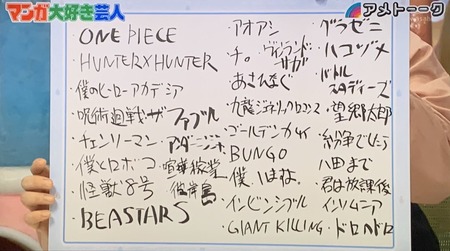 マンガ大好き芸人
アメトーーク
ONE PIECE
HUNTER×HUNTER
僕のヒーローアカデミア
呪術廻戦
ザ ファブル
チェンソーマン
アンダーニンジャ
僕とロボコ
喧嘩稼業
怪獣8号
彼岸島
BEASTARS
アオアシ
チ。
ヴィンランドサガ
あさひなぐ
九龍ジェネリックロマンス
ゴールデンカムイ
BUNGO
僕はね。
インビンシブル
GIANT KILLING
グラゼニ
ハコヅメ
バトルスタディーズ
望郷太郎
紛争でしたら
八田まで
君は放課後
インソムニア
ドロヘドロ